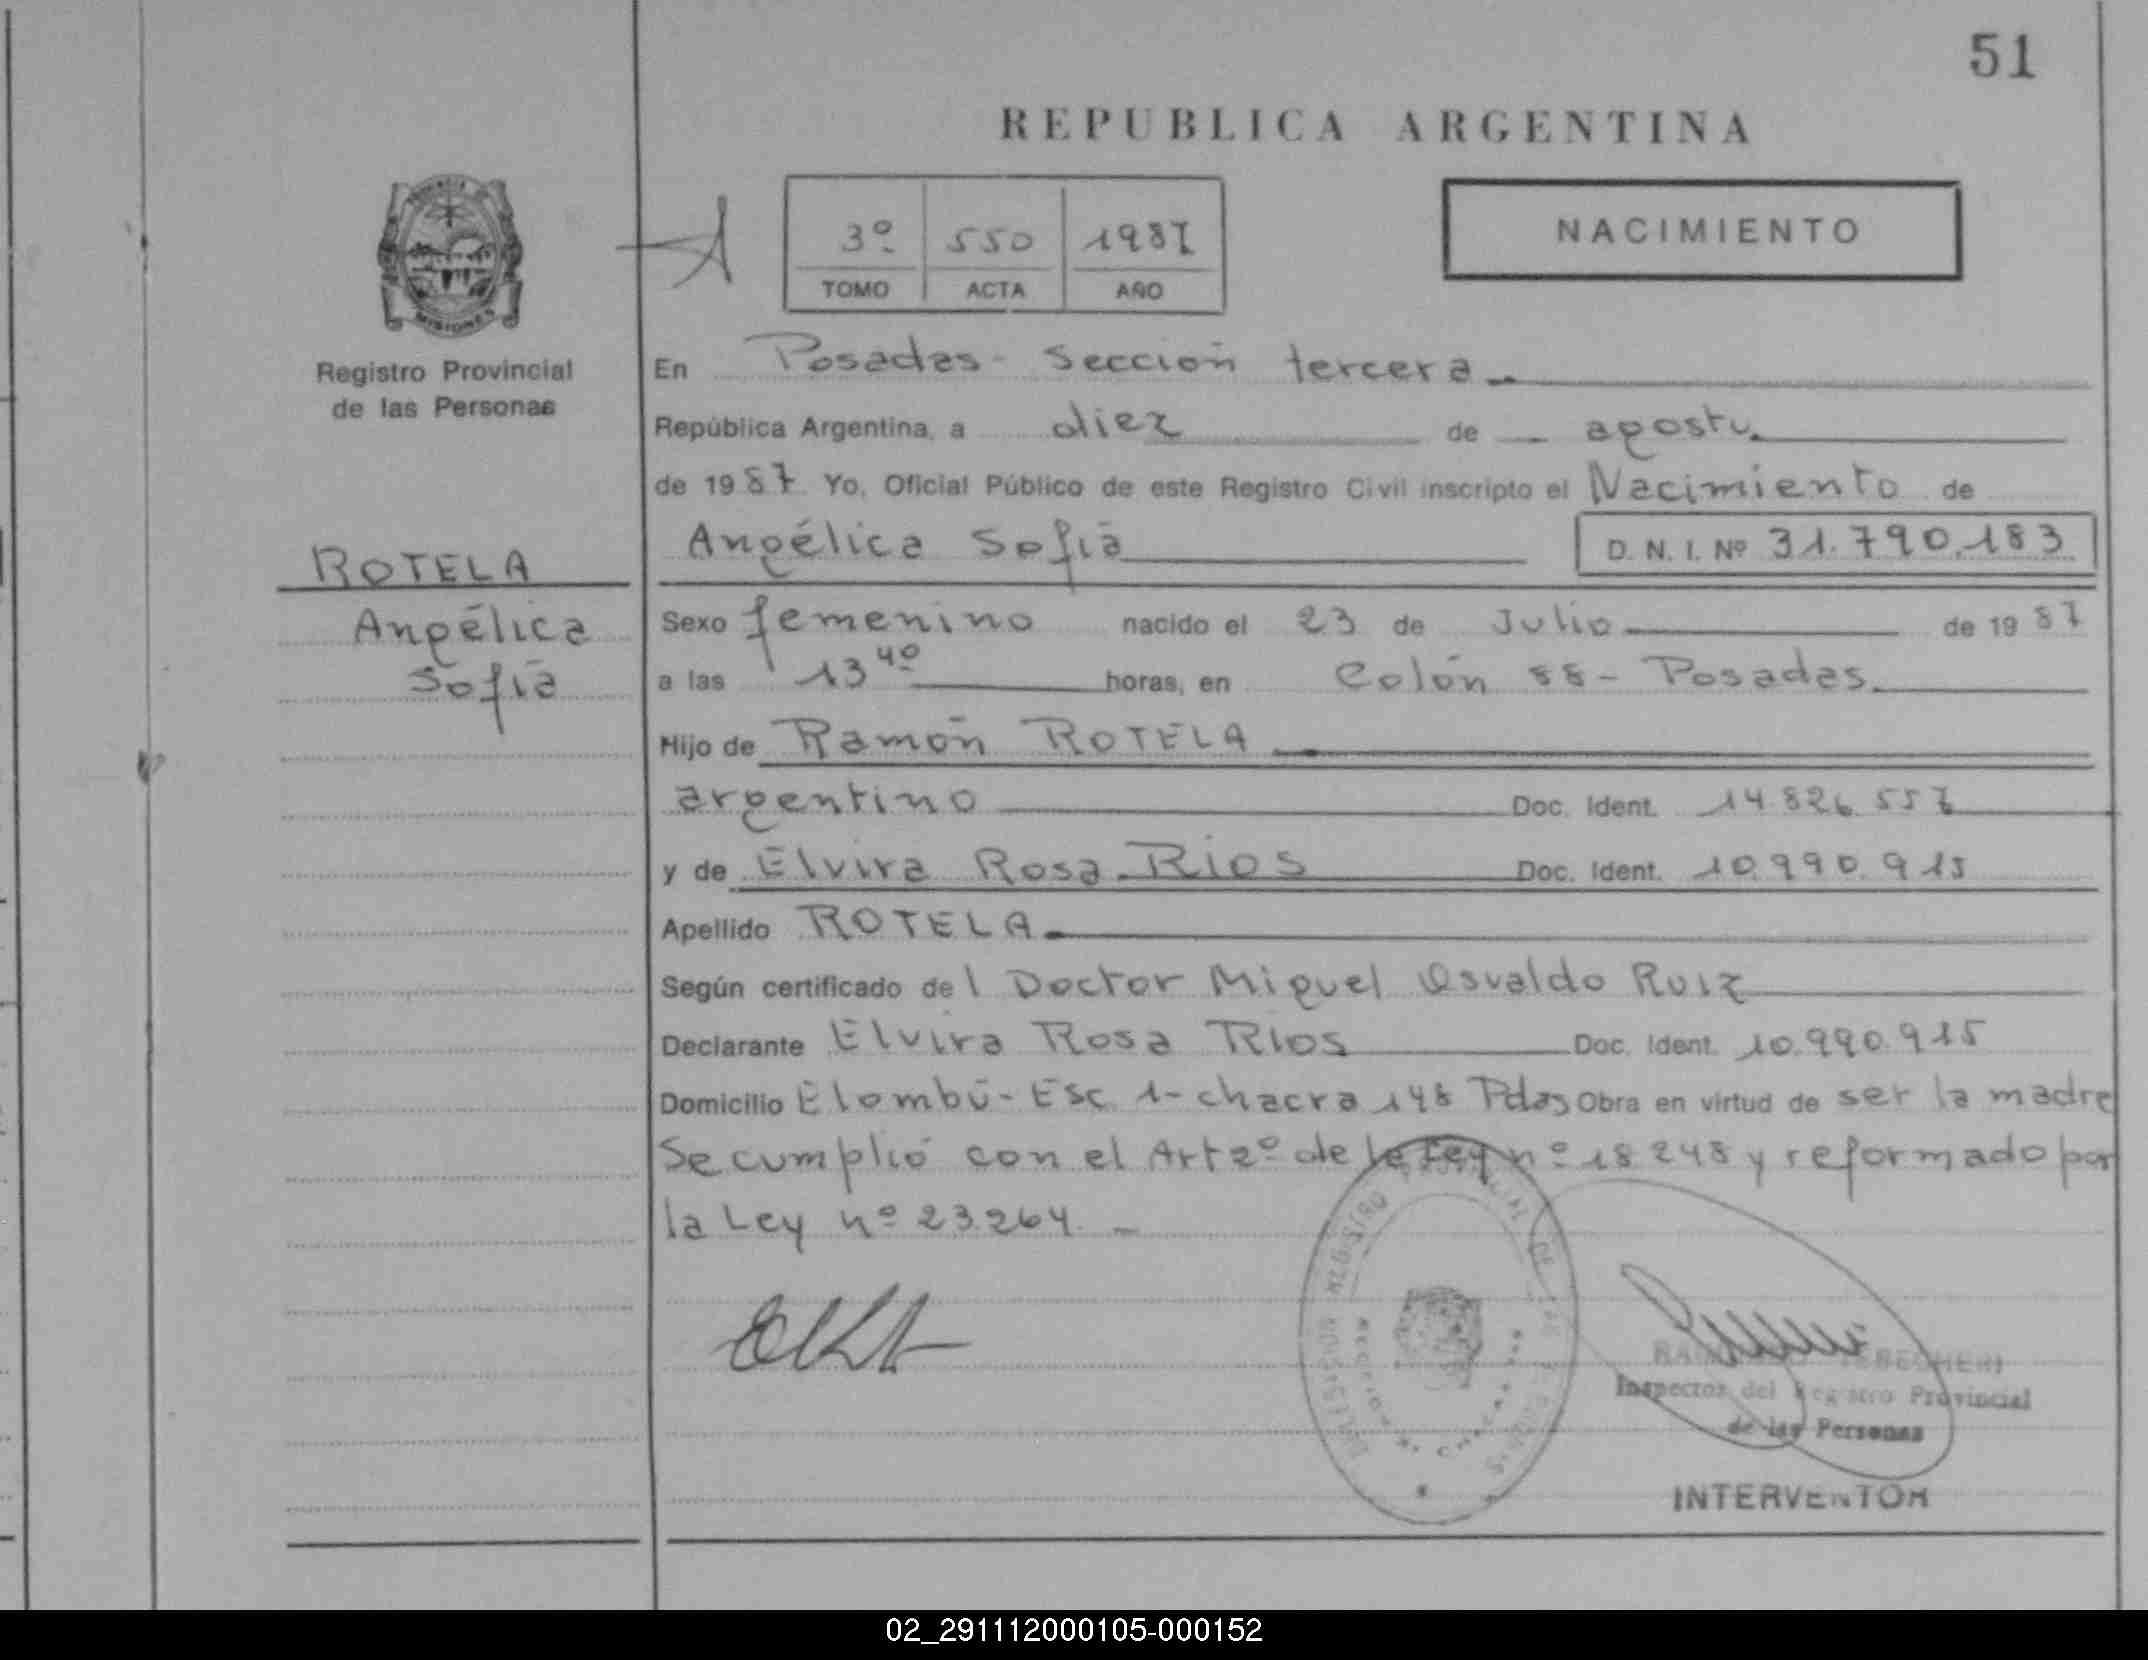 51
REPUBLICA ARGENTINA
3º 550 1987
TOMO ACTA AÑO
NACIMIENTO
MISIONES
Registro Provincial
de las Personas
ROTELA
Angélica
Sofía
En Posadas - Sección tercera
República Argentina, a diez de agosto
de 1987 Yo, Oficial Público de este Registro Civil inscripto el Nacimiento de
Angélica Sofía D. N. I. Nº 31.790.183
Sexo femenino nacido el 23 de Julio de 1987
a las 13 40 horas, en Colón 88 - Posadas
Hijo de Ramón ROTELA
argentino Doc. Ident. 14.826.557
y de Elvira Rosa Rios Doc. Ident. 10.990.915
Apellido ROTELA
Según certificado del Doctor Miguel Osvaldo Ruiz
Declarante Elvira Rosa Rios Doc. Ident. 10.990.915
Domicilio El ombú - Esc. 1 - chacra 148 Pdas Obra en virtud de ser la madre
Se cumplió con el Art 2º de la Ley nº 18248 y reformado por
la Ley nº 23.264. -
REGISTRO PROVINCIAL DE LAS
Inspector del Registro Provincial
de las Personas
INTERVENTOR
02_291112000105-000152